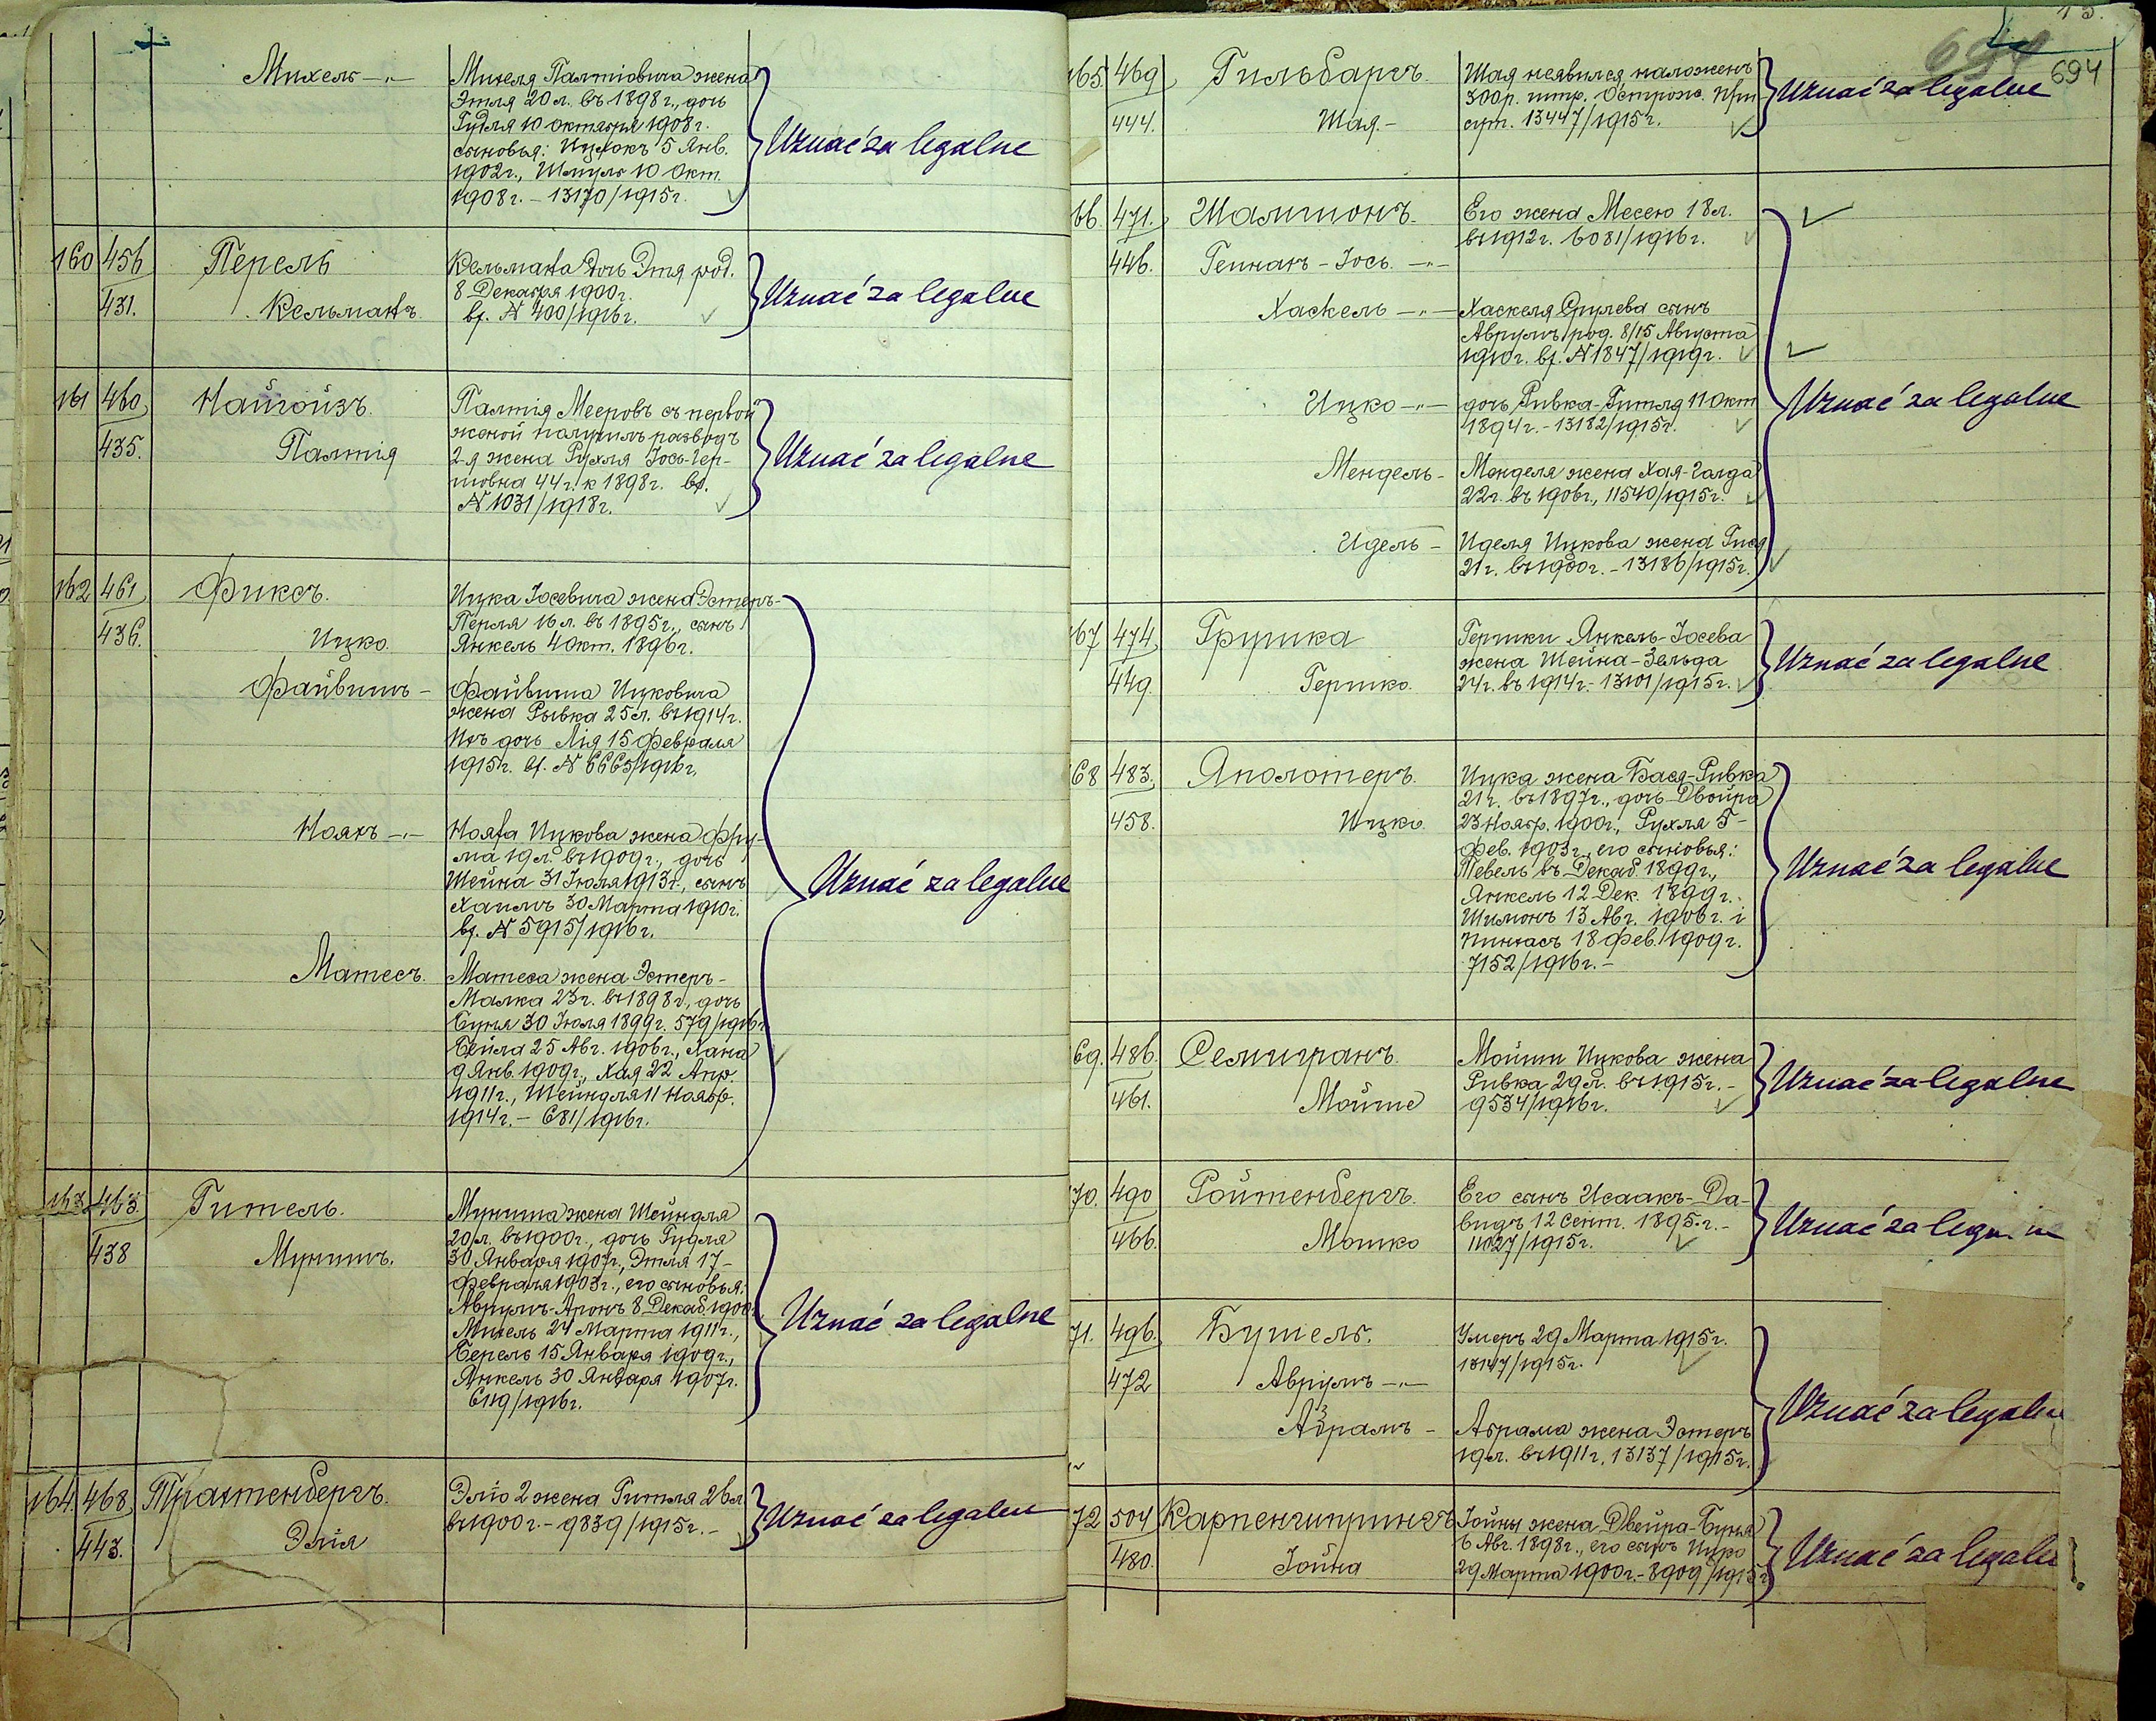 Михель -"-
Михеля Палтіовича жена
Этля 20 л. въ 1898 г., дочь
Гудля 10 октября 1908 г.
сыновья: Ицхокъ 5 Янв.
1902 г., Шмуль 10 Окт.
1908 г. - 13170/1915 г.
Uznać za legalne
160 456 Перель
431. Кельманъ.
Кельмана дочь Этя род.
8 Декабря 1900 г.
вх. N 400/1916 г.
Uznać za legalne
161 460 Найгойзъ.
435. Палтія
Палтія Мееровъ съ первой
женой получилъ разводъ
2-я жена Рухля Іось-Гер-
шовна 44 г. к 1898 г. вх.
N 1031/1918 г.
Uznać za legalne
162 461 Фиксъ.
436. Ицко
Ицка Іосевича жена Эстеръ-
Перля 16 л. въ 1895 г., сынъ
Янкель 4 Окт. 1896 г.
Файвишъ -
Файвиша Ицковича
жена Рывка 25 л. въ 1914 г.
Ихъ дочь Лія 15 Февраля
1915 г. вх. N 6665/1916 г.
Нояхъ -"-
Нояха Ицкова жена Фру-
ма 19 л. въ 1909 г., дочь
Шейна 31 Іюля 1913 г., сынъ
Хаимъ 30 Марта 1910 г.
вх. N 5915/1916 г.
Матесъ.
Матеса жена Эстеръ-
Малка 23 г. въ 1898 г., дочь
Буня 30 Іюля 1899 г. 579/1916 г
Бейла 25 Авг. 1906 г., Хана
9 Янв. 1909 г., Хая 22 Апр.
1911 г., Шейндля 11 Ноябр.
1914 г. - 681/1916 г.
Uznać za legalne
163 463. Гитель.
438 Мунишъ.
Муниша жена Шейндля
20 л. въ 1900 г., дочь Гудля
30 Января 1907 г., Этля 17-
Февраля 1903 г., его сыновья:
Аврумъ-Аронъ 8 Декаб. 1900
Михель 24 Марта 1911 г.,
Берель 15 Января 1909 г.,
Янкель 30 Января 1907 г.
6119/1916 г.
Uznać za legalne
164 468 Трахтенбергъ.
443. Элія
Эліо 2 жена Гитля 26 л
въ 1900 г. - 9839/1915 г. -
Uznać za legalne
13.
694
694
165. 469 Гильбаргъ.
444. Шая. -
Шая неявился наложенъ
300 р. штр. Острож. При
сут. 13447/1915 г.
Uznać za legalne
66. 471. Шалшонъ.
446. Генпахъ - Іось. -"-
Его жена Месею 18 л.
въ 1912 г. 6081/1916 г.
Хаскель -"-
Хаскеля Срулева сынъ
Аврумъ род. 8/15 Августа
1910 г. вх. N 1847/1919 г.
Ицко -"-
дочь Ривка-Гитля 11 Окт
1894 г. - 13182/1915 г.
Мендель -
Менделя жена Хая-Голда
22 г. въ 1906 г., 11540/1915 г.
Идель -
Иделя Ицкова жена Гися
21 г. въ 1900 г. - 13186/1915 г.
Uznać za legalne
167 474 Грушка
449. Гершко.
Гершки Янкель-Іосева
жена Шейна-Зельда
24 г. въ 1914 г. - 13101/1915 г.
Uznać za legalne
168 483. Яполотеръ.
458. Ицко.
Ицка жена Бася-Ривка
21 г. въ 1897 г., дочь Двойра
23 Ноябр. 1900 г., Рухля 5-
Фев. 1903 г., его сыновья:
Тевель въ Декаб. 1899 г.,
Янкель 12 Дек. 1899 г.
Шимонъ 13 Авг. 1906 г. і
Пинхасъ 18 Фев. 1909 г.
7152/1916 г. -
Uznać za legalne
69. 486. Семигранъ.
461. Мойше
Мойши Ицкова жена
Ривка 29 л. въ 1915 г. -
9534/1916 г.
Uznać za legalne
70. 490 Ройтенбергъ.
466. Мошко
Его сынъ Исаакъ-Да-
видъ 12 Сент. 1895 г. -
11027/1915 г.
Uznać za legalne
71. 496. Бутель.
472 Аврумъ -"-
Умеръ 29 Марта 1915 г.
13147/1915 г.
Абрамъ -
Абрама жена Эстеръ
19 л. въ 1911 г. 13137/1915 г.
Uznać za legalne
72 504 Карпенгипрингъ
480. Іойна
Іойны жена Двейра-Буня
6 Авг. 1898 г., его сынъ Ицко
29 Марта 1900 г. - 8909/1915 г
Uznać za legalne